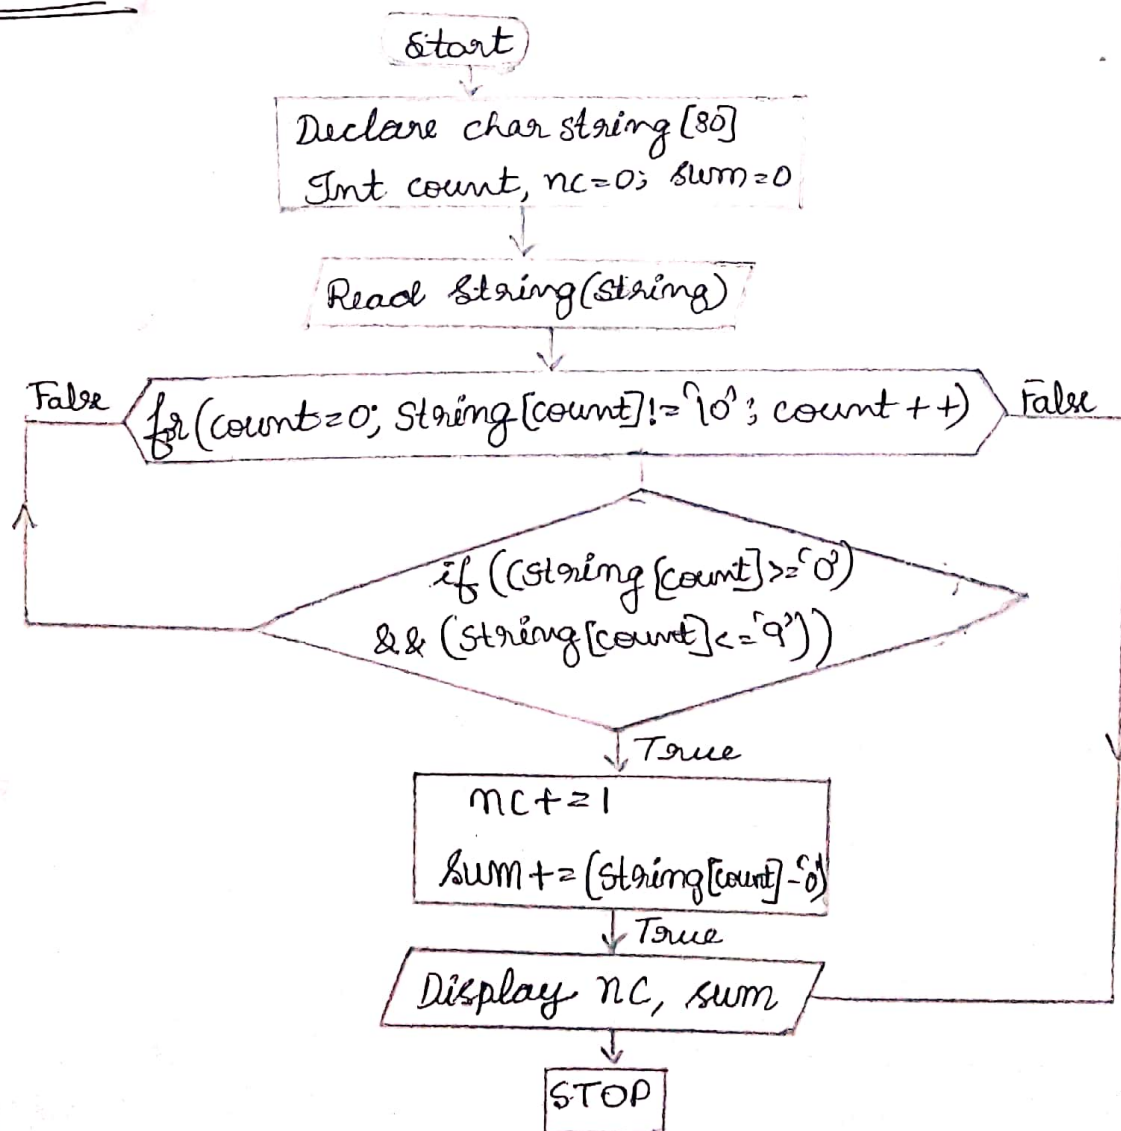 Start
Declare char string [80]
Int count, nc=0; sum=0
Read String(string)
False
for(count=0; String[count]!='\0'; count++)
False
if ((string[count]>='0')
&& (string[count]<='9'))
True
nc+=1
sum+=(string[count]-'0')
True
Display nc, sum
STOP